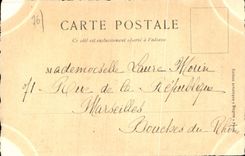 76)
CARTE POSTALE
Ce côté est exclusivement réservé à l'adresse
Mademoiselle Laure Morin
Rue de la République
Marseilles
Bouches du Rhône